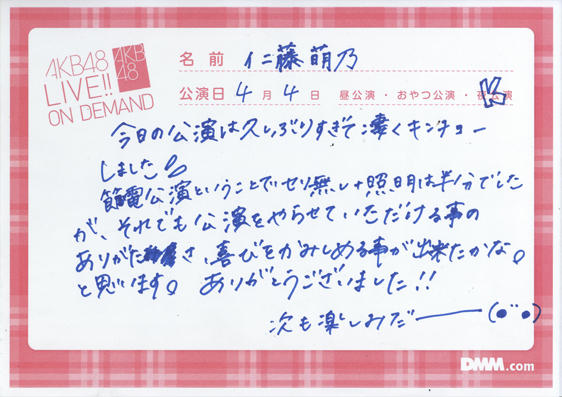 AKB48
LIVE!!
ON DEMAND
AKB
48
名前 仁藤萌乃
公演日 4月4日 昼公演・おやつ公演・夜公演 K
今日の公演は久しぶりすぎて凄くキンチョー
しました
節電公演ということでセリ無し+照明は半分でした
が、それでも公演をやらせていただける事の
ありがたさ、喜びをかみしめる事が出来たかな。
と思います。ありがとうございました!!
次も楽しみだー
DMM.com